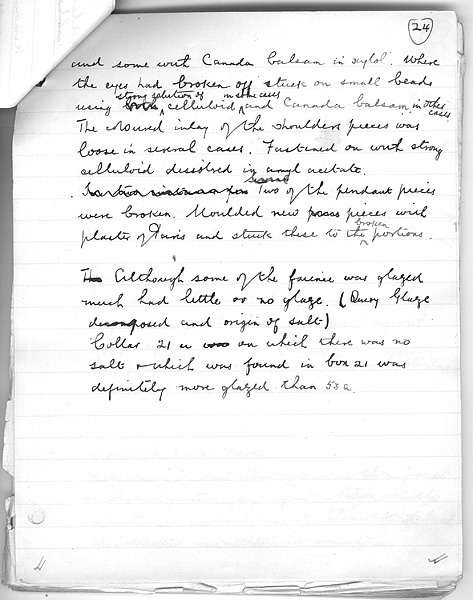 24
and some with Canada balsam in xylol. Where
the eyes had broken off stuck on small beads
using both strong solution of celluloid in some cases and Canada balsam in other cases
The coloured inlay of the shoulder pieces was
loose in several cases. Fastened on with strong
celluloid dissolved in amyl acetate.
Two of the pendant pieces
were broken. Moulded new pieces with
plaster of Paris and stuck these to the broken portions.
Th Although some of the faience was glazed
much had little or no glaze. (Query Glaze
decomposed and origin of salt)
Collar 21 u on which there was no
salt & which was found in box 21 was
definitely more glazed than 53a.